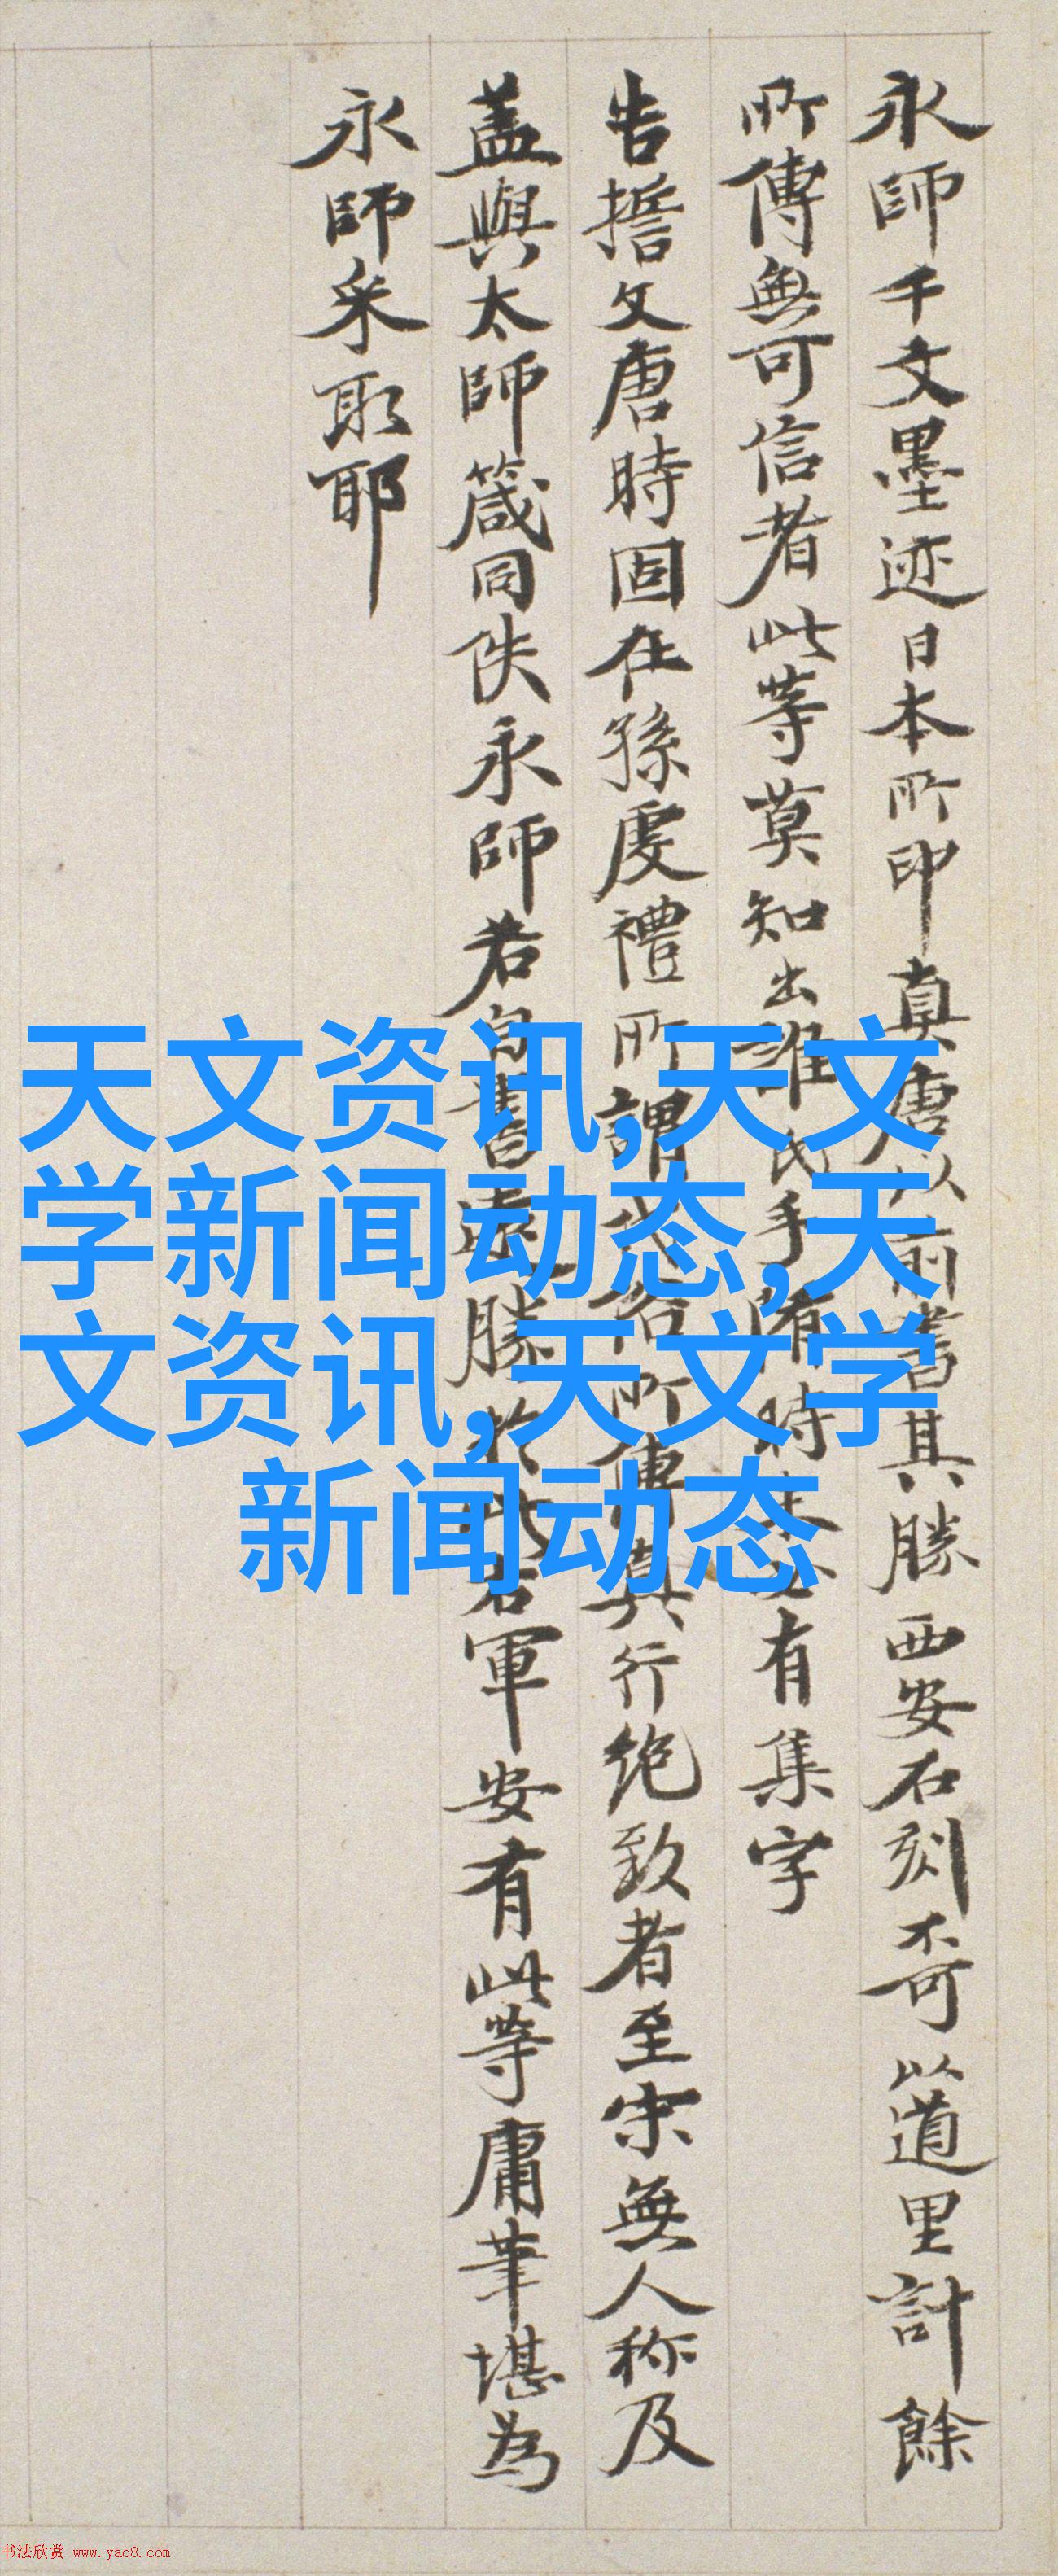 永師千文墨迹日本所印真唐以前書其勝西安石刻不可以道里計餘
所傳無可信者此等莫知出誰氏手隋時 有集字
告擔文唐時固在孫虔禮所謂代名所傳真行絶致者至宋無人称及
盖與太師箴同佚永師若自書 勝於 右軍安有此等庸筆堪為
永師采取耶
天文资讯,天文
学新闻动态,天
文资讯,天文学
新闻动态
书法欣赏 www.yac8.com